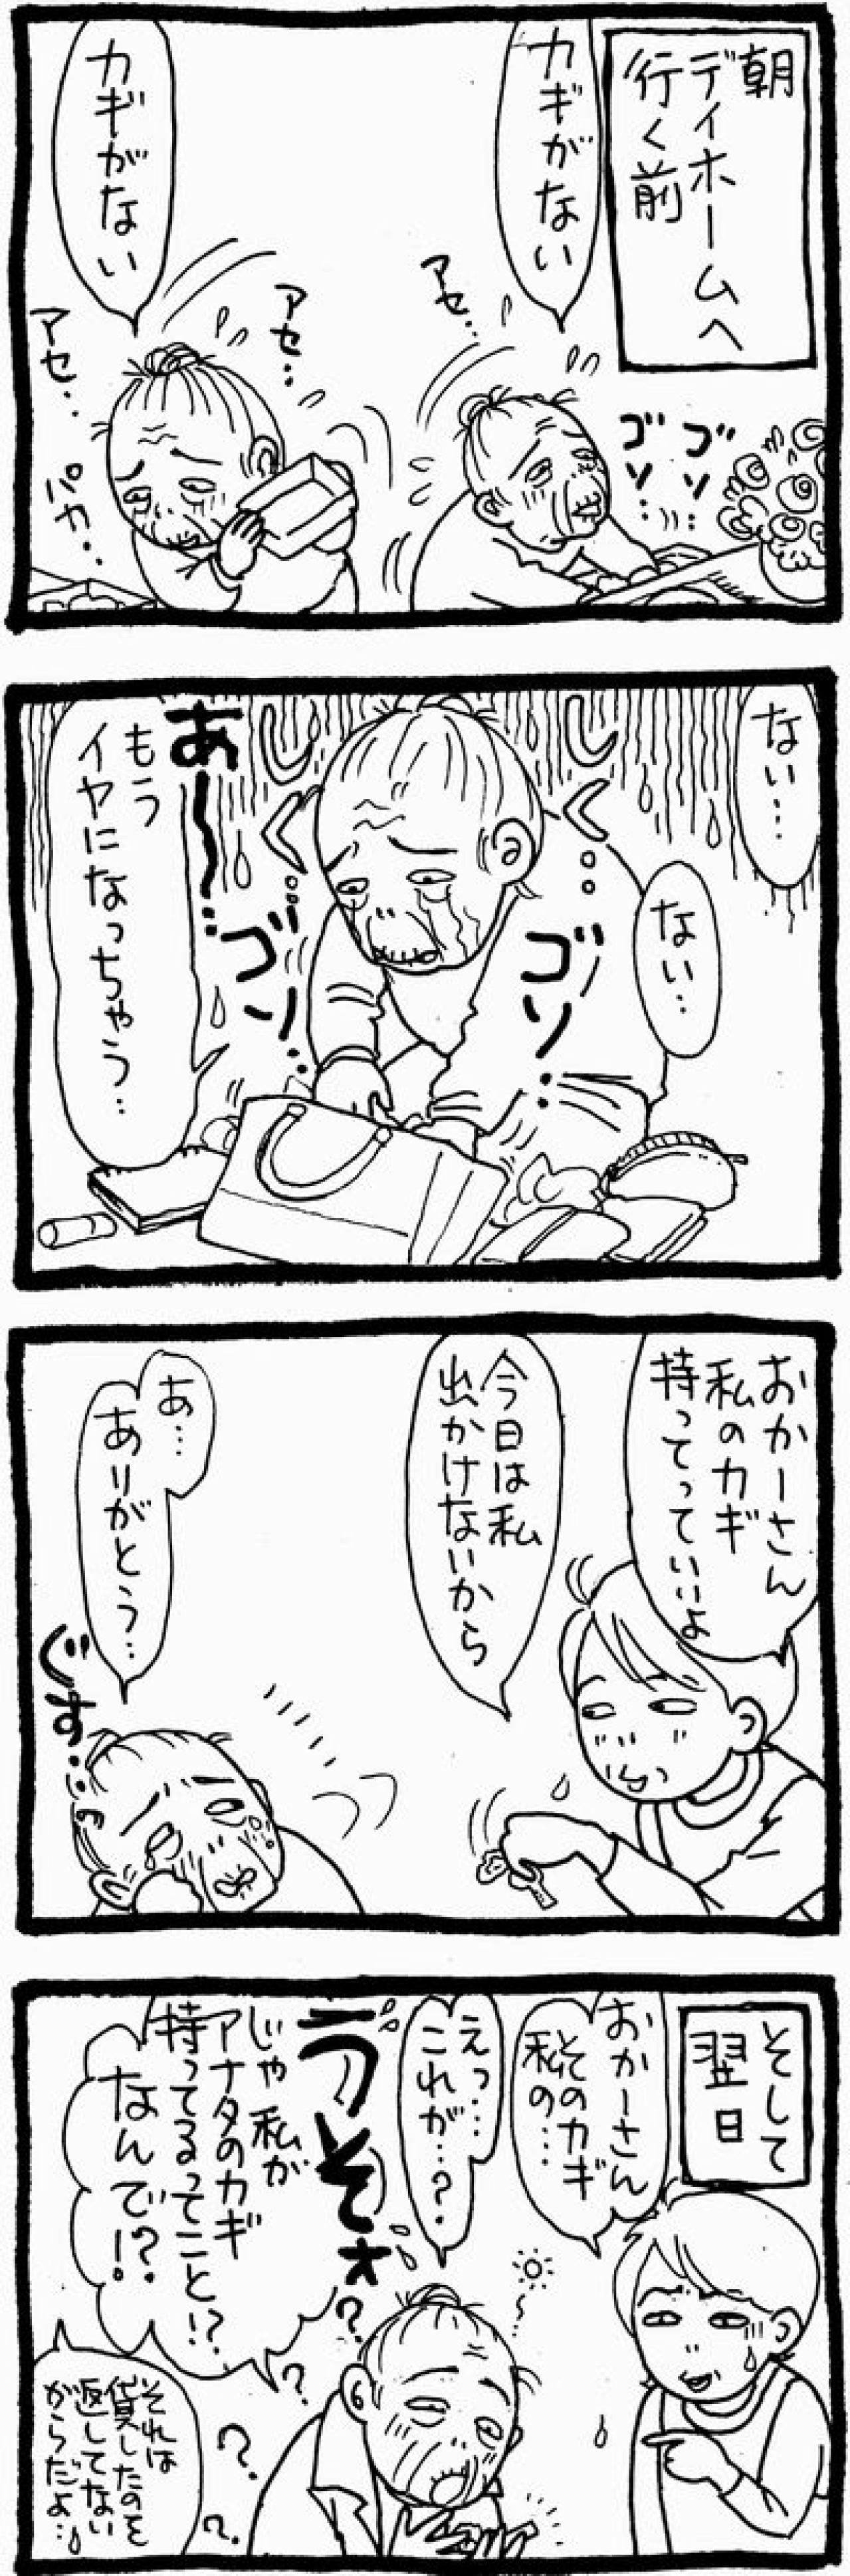 朝
デイホームへ
行く前
カギがない
アセ…
ゴソ
ゴソ…
カギがない
アセ…
アセ…
パカ…
ない…
ない…
しく…
しく…
ゴソ…
ゴソ…
あ〜…
もう
イヤになっちゃう…
おかーさん
私のカギ
持ってっていいよ
今日は私
出かけないから
あ…
ありがとう…
ぐす…
そして
翌日
おかーさん
そのカギ
私の…
えっ…
これが…?
うそォ
じゃ私が
アナタのカギ
持ってるってこと!?
なんで!?
?
?
?
?
それは
貸したのを
返してない
からだよ…